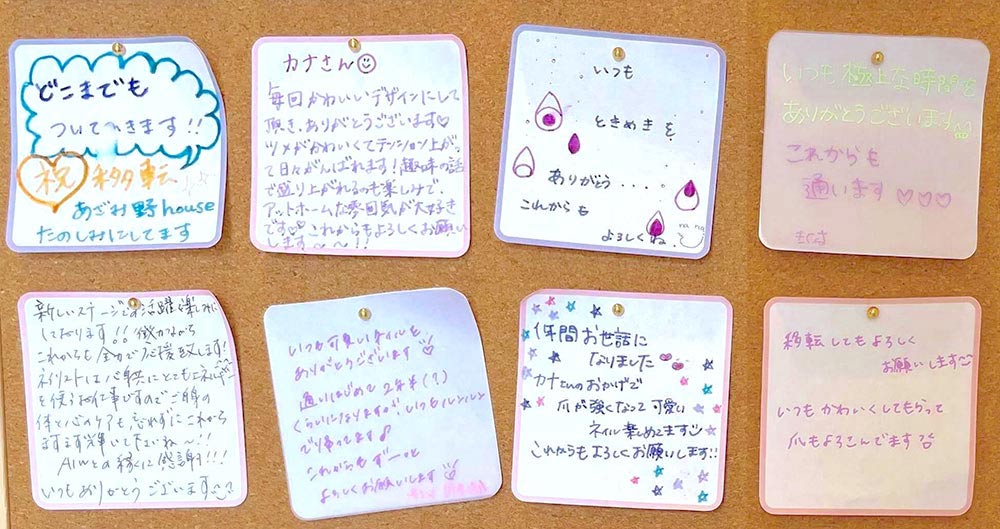 どこまでも
ついていきます!!
祝 移転
あざみ野house
たのしみにしてます
カナさん
毎回かわいいデザインにして
頂き、ありがとうございます♡
ツメがかわいくてテンション上がっ
て日々がんばれます!趣味の話
で盛り上がれるのも楽しみで
アットホームな雰囲気が大好き
です♡♡これからもよろしくお願い
します〜〜!!
いつも
ときめきを
ありがとう....
これからも
よろしくね.
いつも極上な時間を
ありがとうございます
これからも
通います♡♡♡
新しいステージでの活躍楽しみに
しております!!微力ながら
これからも全力で応援致します!
ネイリストは心身共にとてもエネルギー
を使うお仕事ですのでご自身の
体と心のケアも忘れずにこれから
ますます輝いて下さいね〜!!
との縁に感謝です!!!
いつもありがとうございます
いつも可愛いネイルを
ありがとうございます♡
通いはじめて2年半(?)
くらいになりますが、いつもルンルン
で帰ってます♪
これからもずーっと
よろしくお願いします♡
1年間お世話に
なりました
カナさんのおかげで
爪が強くなって可愛い
ネイル楽しめてます
これからもよろしくお願いします!!
移転してもよろしく
お願いします
いつもかわいくしてもらって
爪もよろこんでます